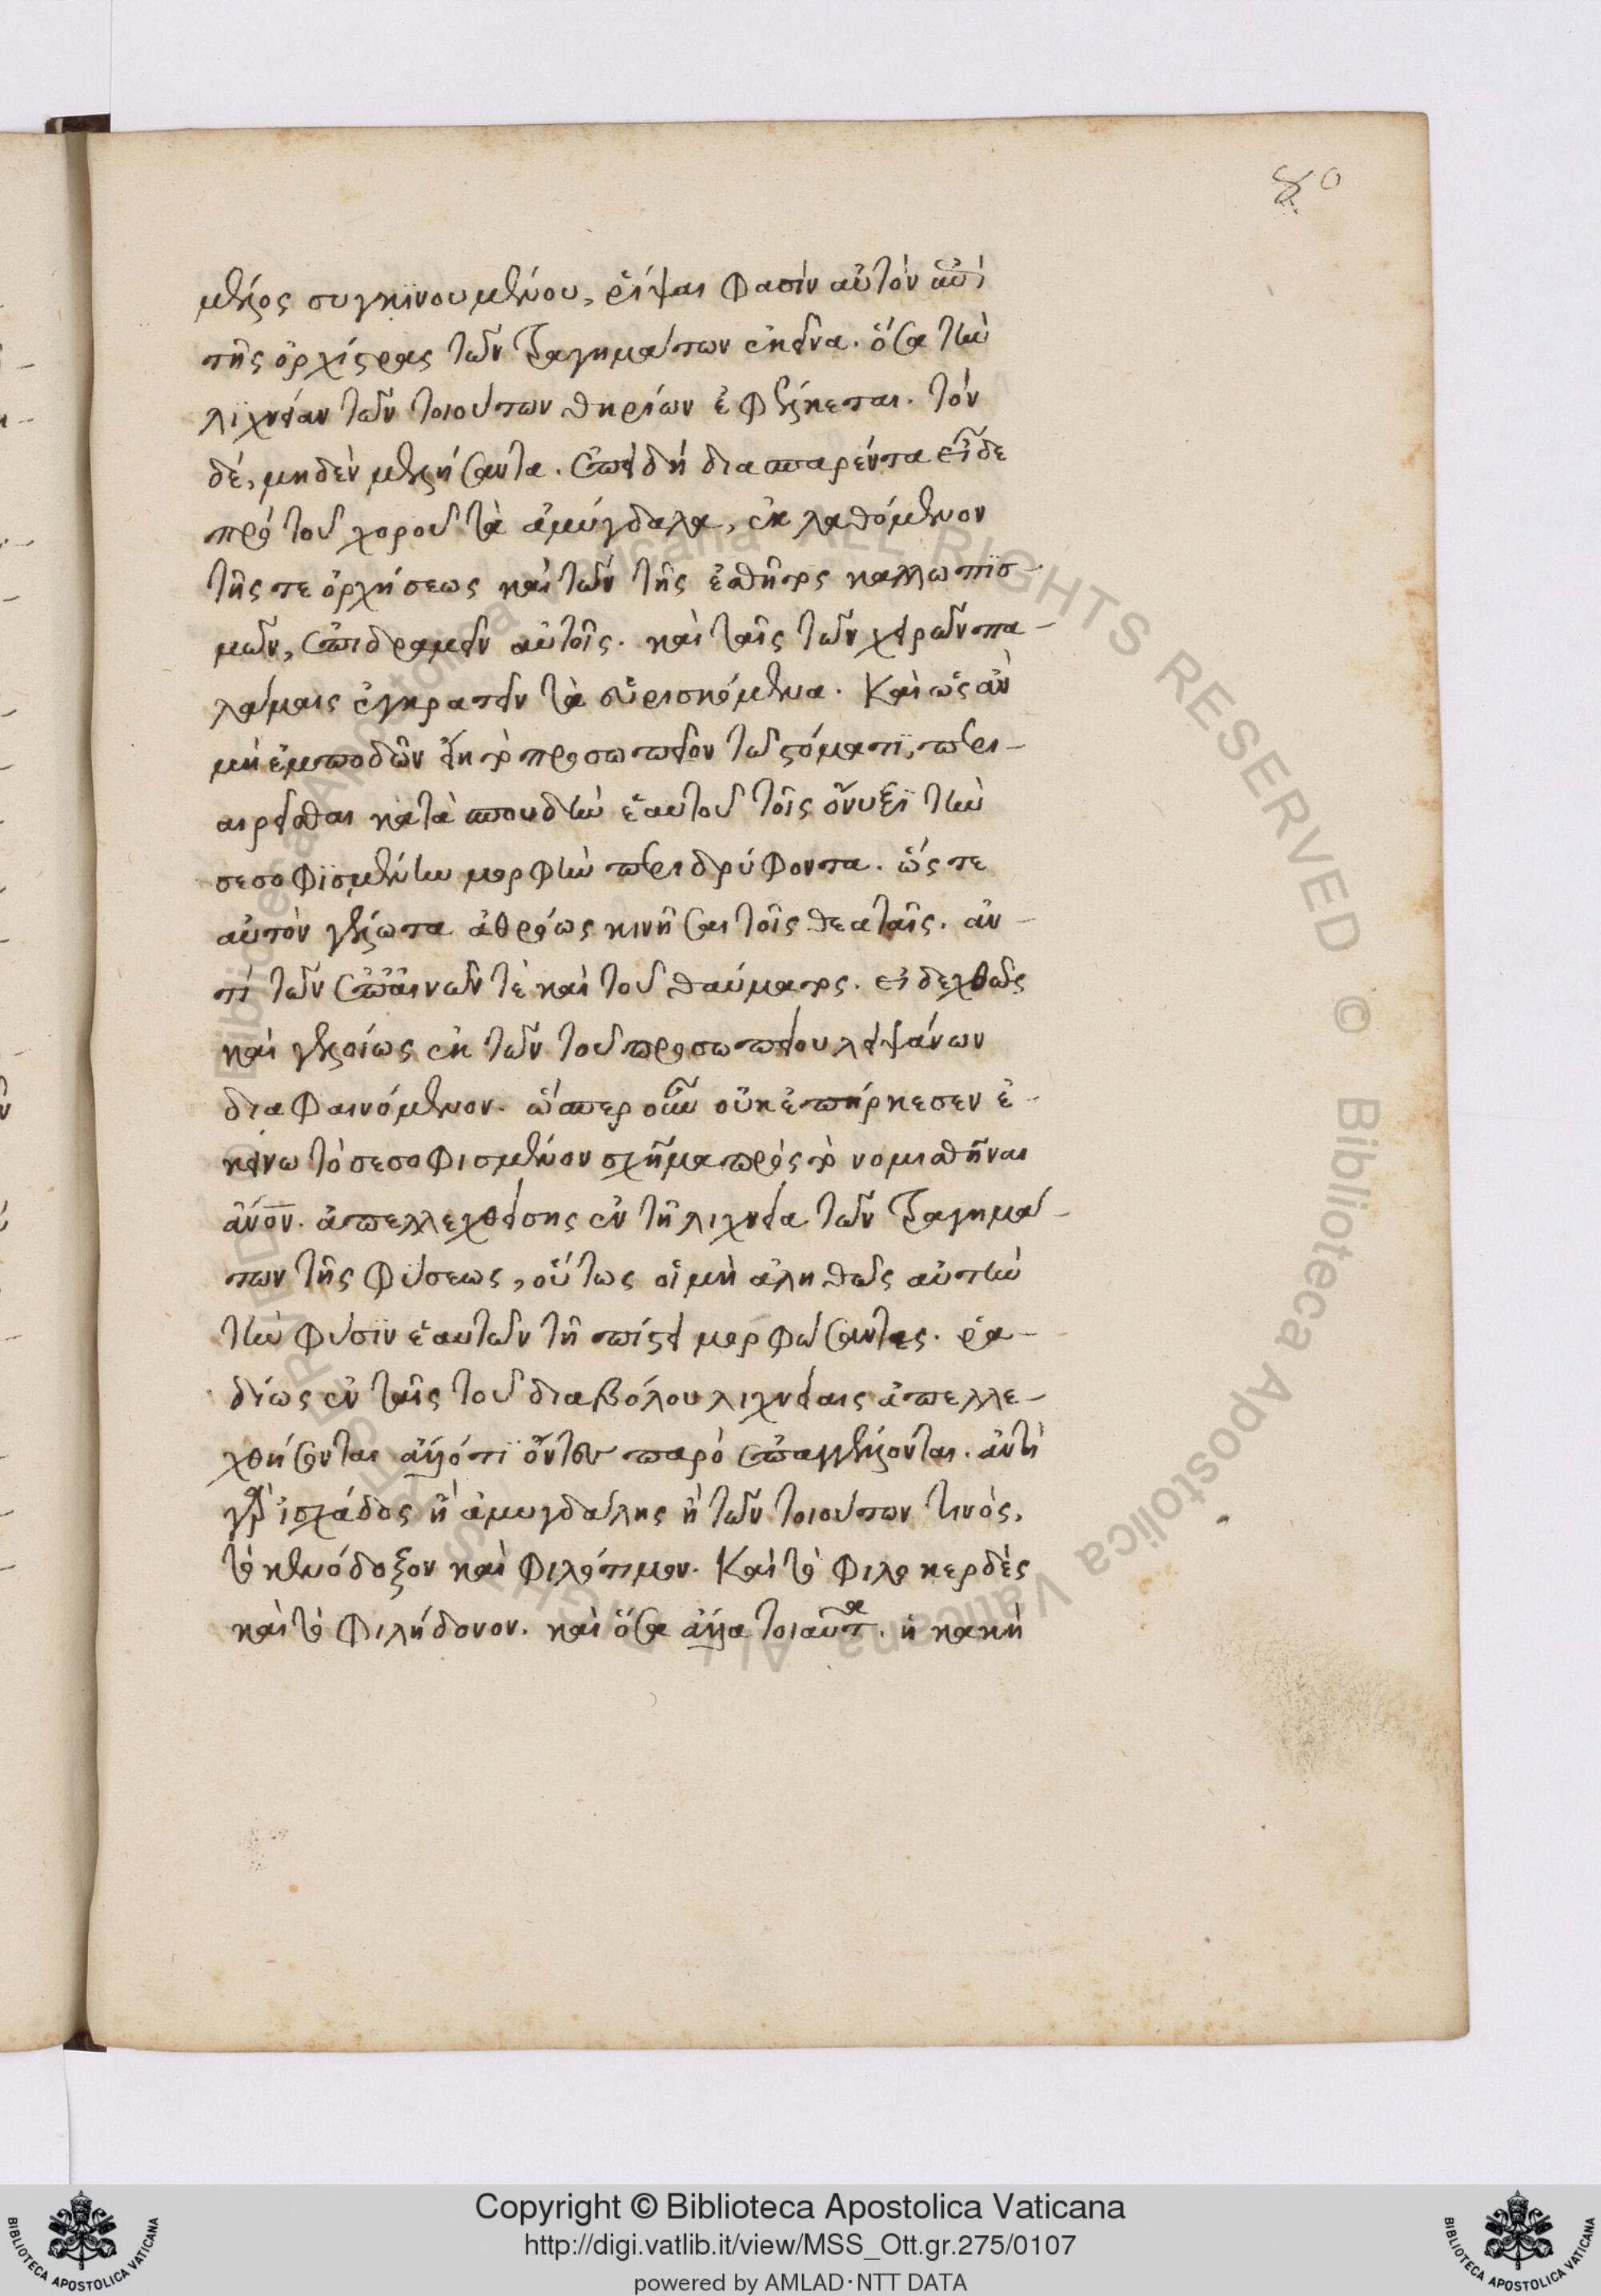 80
μέλος συγκινουμένου, ῥίψαι φασὶν αὐτὸν ἐπὶ
τῆς ὀρχίστρας τῶν τραγημάτων ἐκεῖνα. ὅσα τὴν
λιχνείαν τῶν τοιούτων θηρίων ἐφέλκεται. τὸν
δέ, μηδὲν μελλήσαντα. ἐπειδὴ διασπαρέντα εἶδε
πρὸ τοῦ χοροῦ τὰ ἀμύγδαλα, ἐκλαθόμενον
τῆς τε ὀρχήσεως καὶ τῶν τῆς ἐσθῆτος καλλωπϊσ-
μῶν, ἐπιδραμεῖν αὐτοῖς. καὶ ταῖς τῶν χειρῶν πα-
λάμαις ἐγκρατεῖν τὰ εὑρισκόμενα. Καὶ ὡς ἂν
μὴ ἐμποδὼν εἴη τὸ προσωπεῖον τῷ στόματϊ, περι-
αιρεῖσθαι κατὰ σπουδὴν ἑαυτοῦ τοῖς ὄνυξϊ τὴν
σεσοφϊσμένην μορφὴν περιδρύφοντα. ὥστε
αὐτὸν γέλωτα ἀθρόως κινῆσαι τοῖς θεαταῖς. ἀν-
τὶ τῶν ἐπαίνων τὲ καὶ τοῦ θαύματος. εἰδεχθῶς
καὶ γελοίως ἐκ τῶν τοῦ προσωπείου λειψάνων
διαφαινόμενον. ὥσπερ οὖν οὐκ ἐπήρκεσεν ἐ-
κείνω τὸ σεσοφισμένον σχῆμα πρὸς τὸ νομισθῆναι
ἄνον. ἀπελλεγχθείσης ἐν τῆ λιχνεία τῶν τραγημά-
των τῆς φύσεως, οὕτως οἱ μὴ ἀληθῶς αὐτὴν
τὴν φύσϊν ἑαυτῶν τῆ πίστει μορφώσαντες. ῥα-
δίως ἐν ταῖς τοῦ διαβόλου λιχνείαις ἀπελλε-
χθήσονται ἄλλό τϊ ὄντες παρὸ ἐπαγγέλλονται. ἀντὶ
γὰρ ἰσχάδος ἢ ἀμυγδάλης ἢ τῶν τοιούτων τινὸς,
τὸ κενόδοξον καὶ φιλότιμον. Καὶ τὸ φιλοκερδὲς
καὶ τὸ φιλήδονον. καὶ ὅσα ἄλλα τοιαῦτα. ἡ κακὴ
Copyright © Biblioteca Apostolica Vaticana
http://digi.vatlib.it/view/MSS_Ott.gr.275/0107
powered by AMLAD·NTT DATA